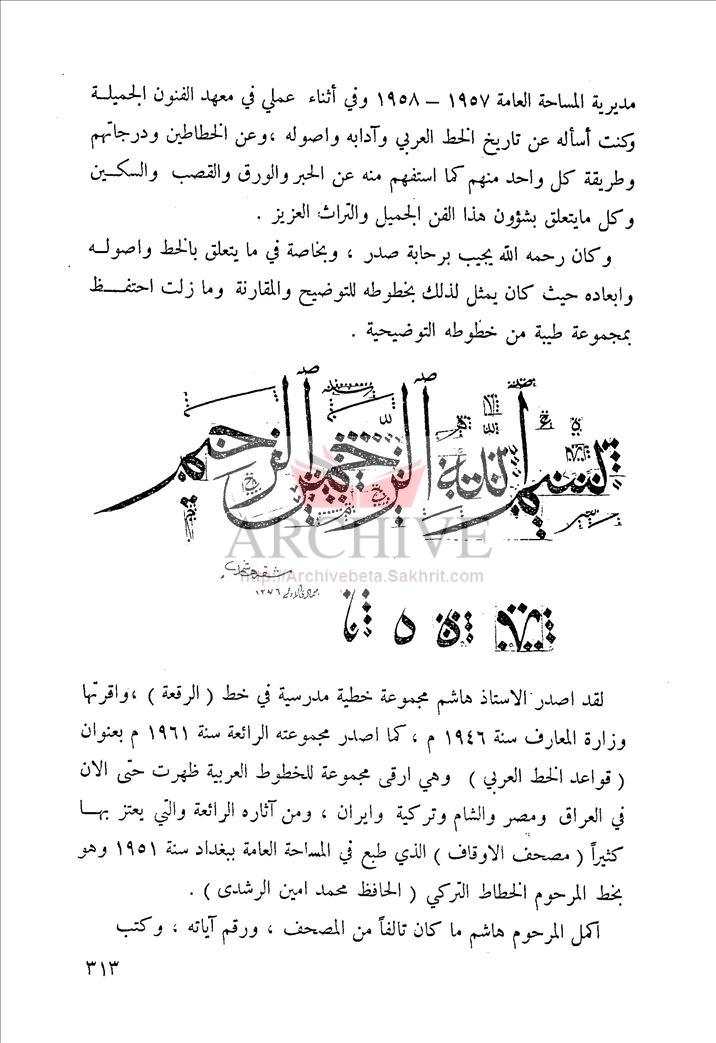 مديرية المساحة العامة ١٩٥٧ – ١٩٥٨ وفي أثناء عملي في معهد الفنون الجميلة
وكنت أسأله عن تاريخ الخط العربي وآدابه واصوله ،وعن الخطاطين ودرجاتهم
وطريقة كل واحد منهم كما استفهم منه عن الحبر والورق والقصب والسكين
وكل مايتعلق بشؤون هذا الفن الجميل والتراث العزيز .
وكان رحمه الله يجيب برحابة صدر ، وبخاصة في ما يتعلق بالخط واصوله
وابعاده حيث كان يمثل لذلك بخطوطه للتوضيح والمقارنة وما زلت احتفظ
بمجموعة طيبة من خطوطه التوضيحية .
بسم الله الرحمن الرحيم
ARCHIVE
http://Archivebeta.Sakhrit.com
١٣٧٦
لقد اصدر الاستاذ هاشم مجموعة خطية مدرسية في خط ( الرقعة ) ،واقرتها
وزارة المعارف سنة ١٩٤٦ م ، كما اصدر مجموعته الرائعة سنة ١٩٦١ م بعنوان
( قواعد الخط العربي ) وهي ارقى مجموعة للخطوط العربية ظهرت حتى الان
في العراق ومصر والشام وتركية وايران ، ومن آثاره الرائعة والتي يعتز بها
كثيراً ( مصحف الاوقاف ) الذي طبع في المساحة العامة ببغداد سنة ١٩٥١ وهو
بخط المرحوم الخطاط التركي ( الحافظ محمد امين الرشدى ) .
اكمل المرحوم هاشم ما كان تالفاً من المصحف ، ورقم آياته ، وكتب
٣١٣